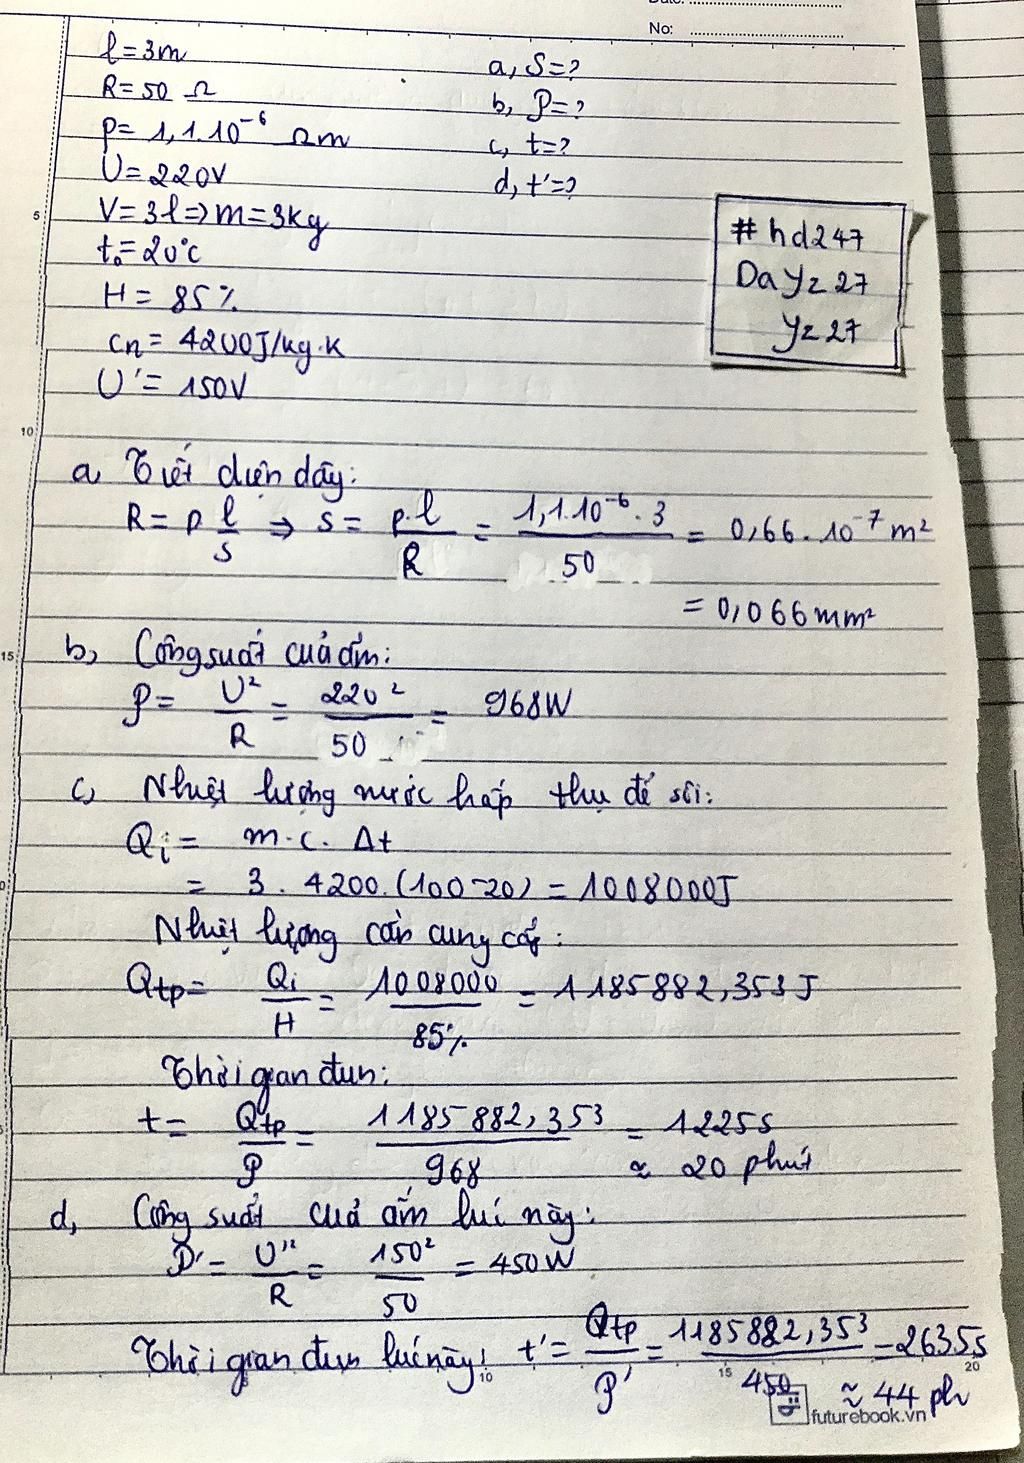 Date: ....................
No: ....................
l = 3m
R = 50 Ω
ρ = 1,1.10⁻⁶ Ωm
U = 220V
V = 3l => m = 3kg
t₀ = 20°C
H = 85%
cn = 4200J/kg.K
U' = 150V
a, S = ?
b, P = ?
c, t = ?
d, t' = ?
#hd247
DaYz27
Yz27
a Tiết diện dây:
R = ρ l/S => S = ρ.l/R = 1,1.10⁻⁶.3/50 = 0,66.10⁻⁷ m²
= 0,066 mm²
b, Công suất của ấm:
P = U²/R = 220²/50 = 968W
c, Nhiệt lượng nước hấp thụ để sôi:
Qi = m.c.Δt
= 3.4200.(100-20) = 1008000J
Nhiệt lượng cần cung cấp:
Qtp = Qi/H = 1008000/85% = 1185882,353J
Thời gian đun:
t = Qtp/P = 1185882,353/968 = 1225s
≈ 20 phút
d, Công suất của ấm lúc này:
P' = U'²/R = 150²/50 = 450W
Thời gian đun lúc này: t' = Qtp/P' = 1185882,353/450 = 2635s
≈ 44 ph
futurebook.vn
5
10
15
10
15
20